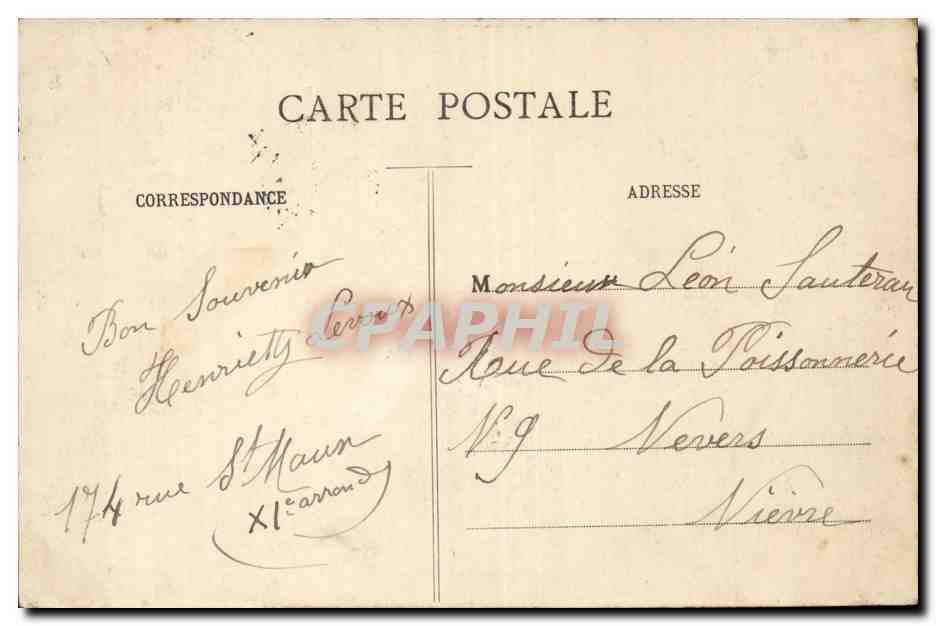 CARTE POSTALE
CORRESPONDANCE
Bon Souvenir
Henriette
174 rue St Maur
XIe arrond
ADRESSE
Monsieur Léon Sauteran
Rue de la Poissonnerie
N° 9 Nevers
Nièvre
CPAPHIL